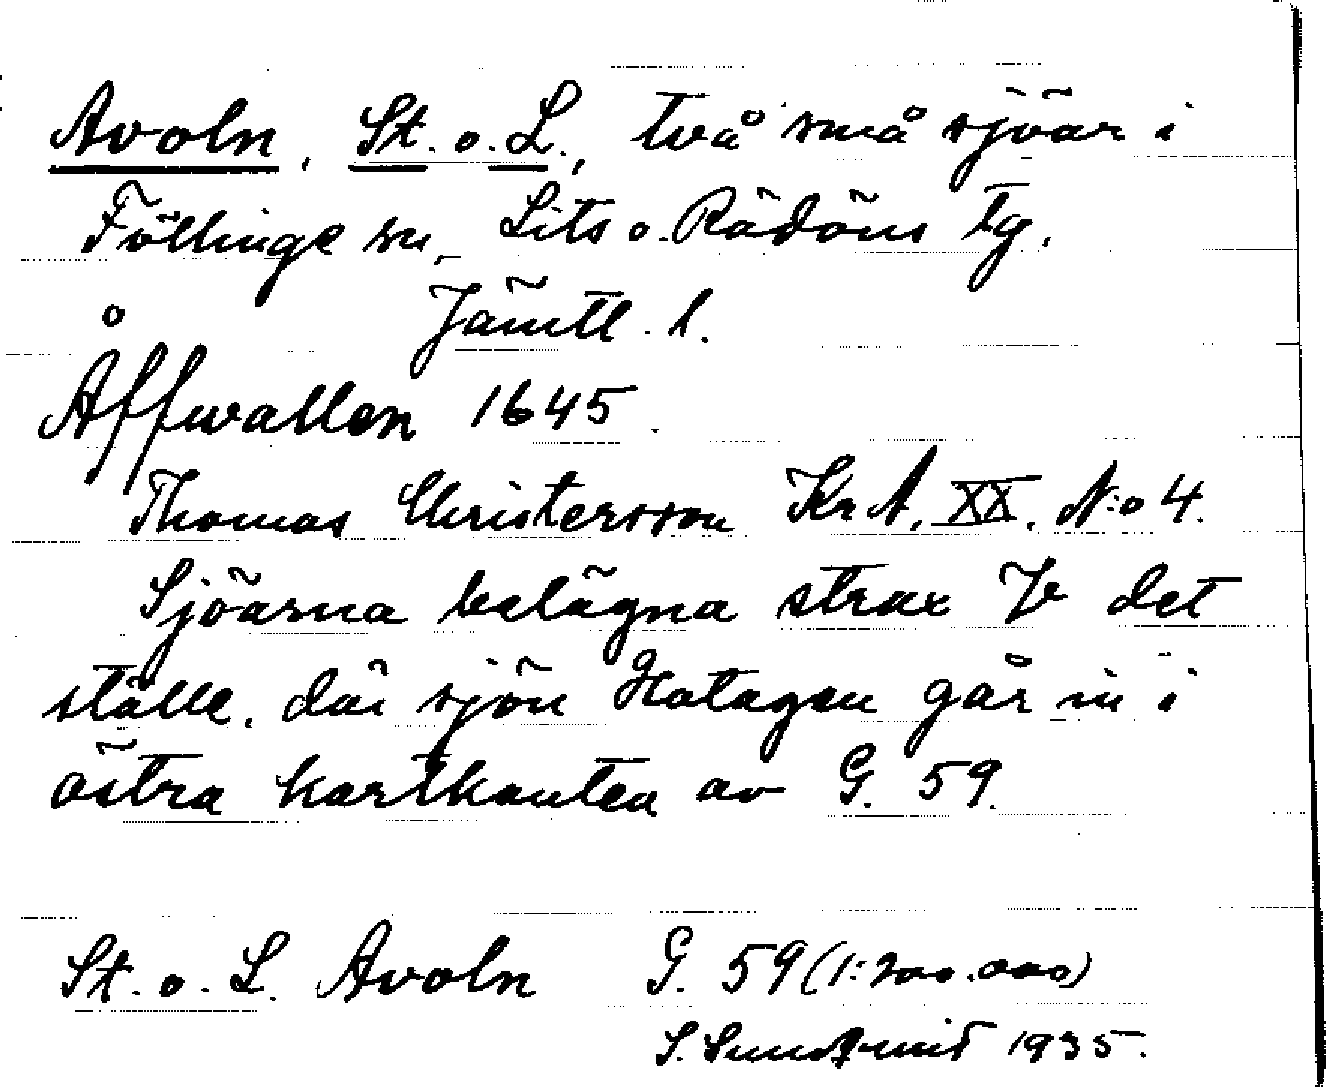 Avoln, St. o. L., två små sjöar i
Föllinge sn, Lits o. Rödöns tg.
Jämtl. l.
Åffwallen 1645.
Thomas Christersson KrA. XX. N:o 4.
Sjöarna belägna strax V det
ställe, där sjön Hotagen går in i
östra kartkanten av G. 59.
St. o. L. Avoln G. 59 (1:200.000)
S. Sundqvist 1935.